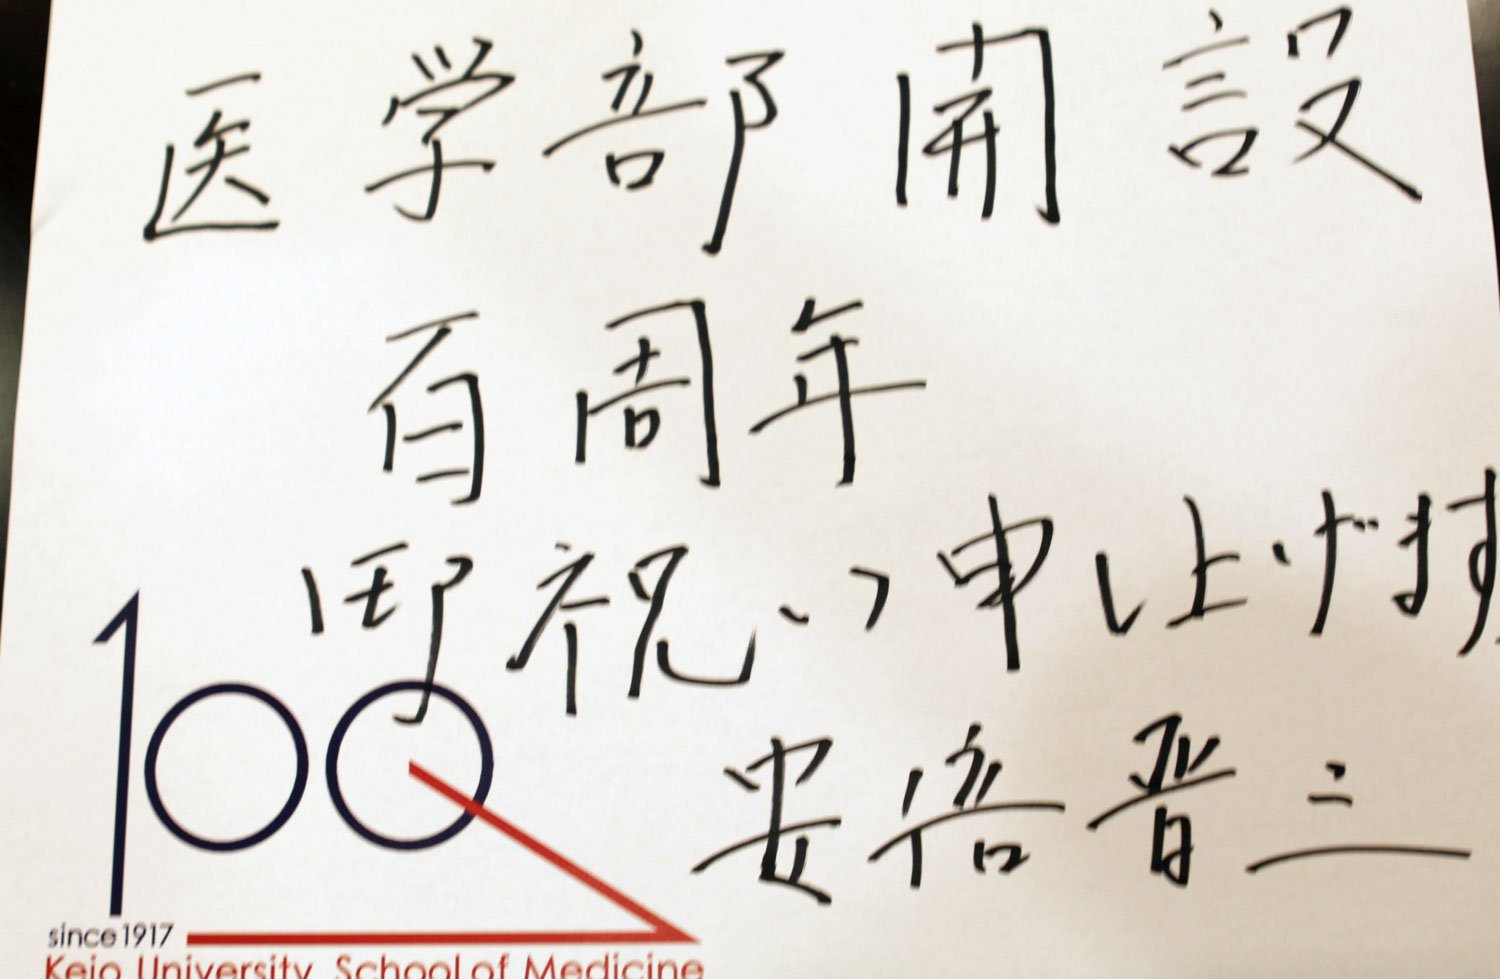 医学部開設
百周年
御祝い申し上げます
安倍晋三
100
since 1917
Keio University, School of Medicine